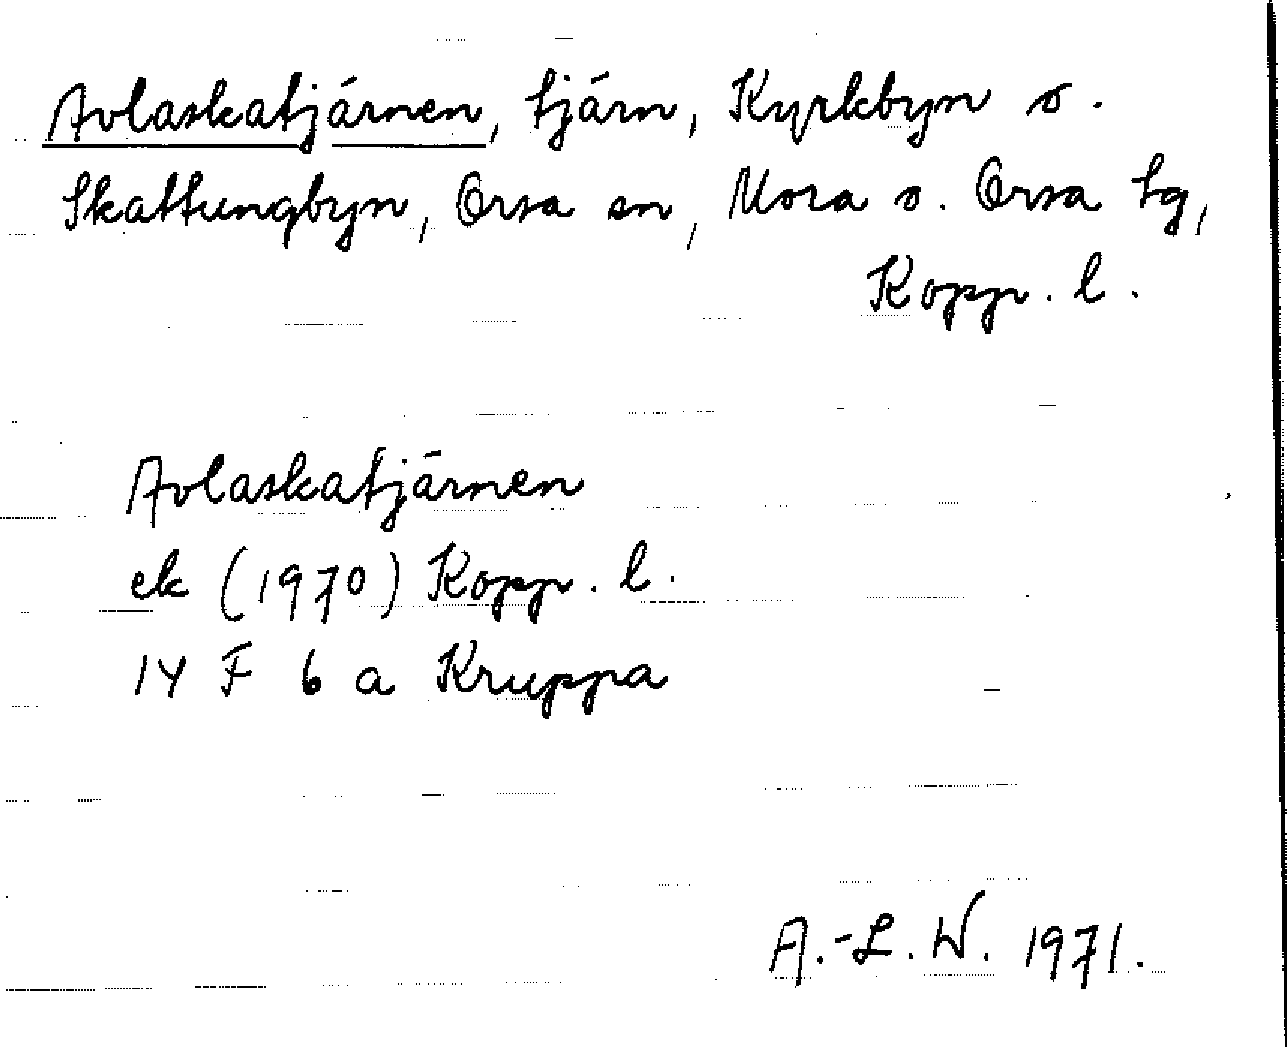 Avlaskatjärnen, tjärn, Kyrkbyn o.
Skattungbyn, Orsa sn, Mora o. Orsa tg,
Kopp. l.
Avlaskatjärnen
ek (1970) Kopp. l.
14 F 6 a Kruppa
A.-L. W. 1971.